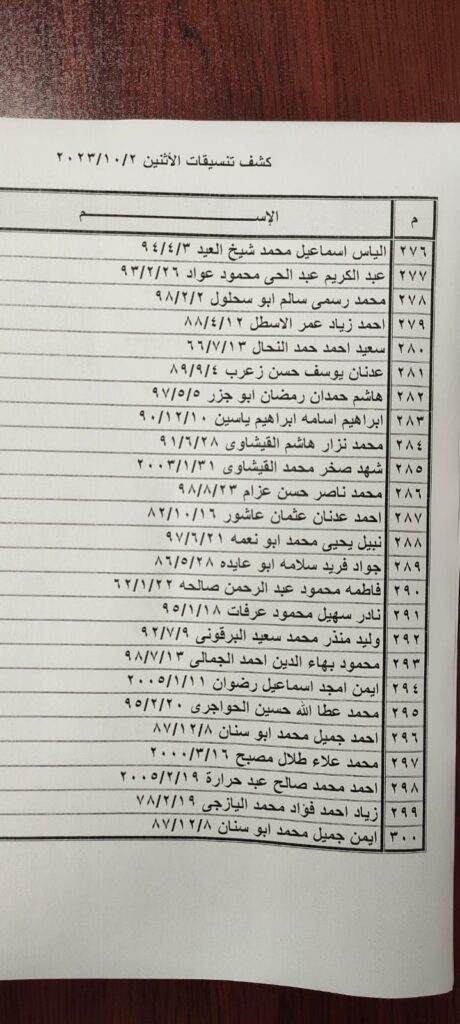 كشف تنسيقات الأثنين ٢٠٢٣/١٠/٢
م الإســـــــــــــــم
٢٧٦ الياس اسماعيل محمد شيخ العيد ٩٤/٤/٣
٢٧٧ عبد الكريم عبد الحى محمود عواد ٩٣/٢/٢٦
٢٧٨ محمد رسمى سالم ابو سحلول ٩٨/٢/٢
٢٧٩ احمد زياد عمر الاسطل ٨٨/٤/١٢
٢٨٠ سعيد احمد حمد النحال ٦٦/٧/١٣
٢٨١ عدنان يوسف حسن زعرب ٨٩/٩/٤
٢٨٢ هاشم حمدان رمضان ابو جزر ٩٧/٥/٥
٢٨٣ ابراهيم اسامه ابراهيم ياسين ٩٠/١٢/١٠
٢٨٤ محمد نزار هاشم القيشاوى ٩١/٦/٢٨
٢٨٥ شهد صخر محمد القيشاوى ٢٠٠٣/١/٣١
٢٨٦ محمد ناصر حسن عزام ٩٨/٨/٢٣
٢٨٧ احمد عدنان عثمان عاشور ٨٢/١٠/١٦
٢٨٨ نبيل يحيى محمد ابو نعمه ٩٧/٦/٢١
٢٨٩ جواد فريد سلامه ابو عايده ٨٦/٥/٢٨
٢٩٠ فاطمه محمود عبد الرحمن صالحه ٦٢/١/٢٢
٢٩١ نادر سهيل محمود عرفات ٩٥/١/١٨
٢٩٢ وليد منذر محمد سعيد البرقونى ٩٢/٧/٩
٢٩٣ محمود بهاء الدين احمد الجمالى ٩٨/٧/١٣
٢٩٤ ايمن امجد اسماعيل رضوان ٢٠٠٥/١/١١
٢٩٥ محمد عطا الله حسين الحواجرى ٩٥/٢/٢٠
٢٩٦ احمد جميل محمد ابو سنان ٨٧/١٢/٨
٢٩٧ محمد علاء طلال مصبح ٢٠٠٠/٣/١٦
٢٩٨ احمد محمد صالح عبد حرارة ٢٠٠٥/٢/١٩
٢٩٩ زياد احمد فؤاد محمد اليازجى ٧٨/٢/١٩
٣٠٠ ايمن جميل محمد ابو سنان ٨٧/١٢/٨